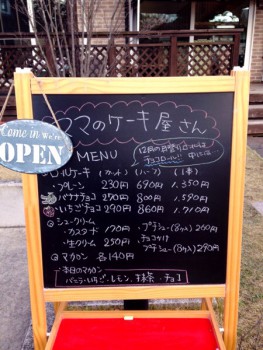 Come in We're
OPEN
ママのケーキ屋さん
MENU
12月の日替りロールは
チョコロール!!
ロールケーキ (カット) (ハーフ) (1本)
プレーン 230円 690円 1,350円
バナナチョコ 270円 800円 1,590円
いちごチョコ 290円 860円 1,710円
シュークリーム
・カスタード 170円 ・プチシュー(8ヶ入) 260円
・生クリーム 250円 ・チョコがけ
プチシュー(8ヶ入) 290円
マカロン 各140円
本日のマカロン
バニラ・いちご・レモン・抹茶・チョコ